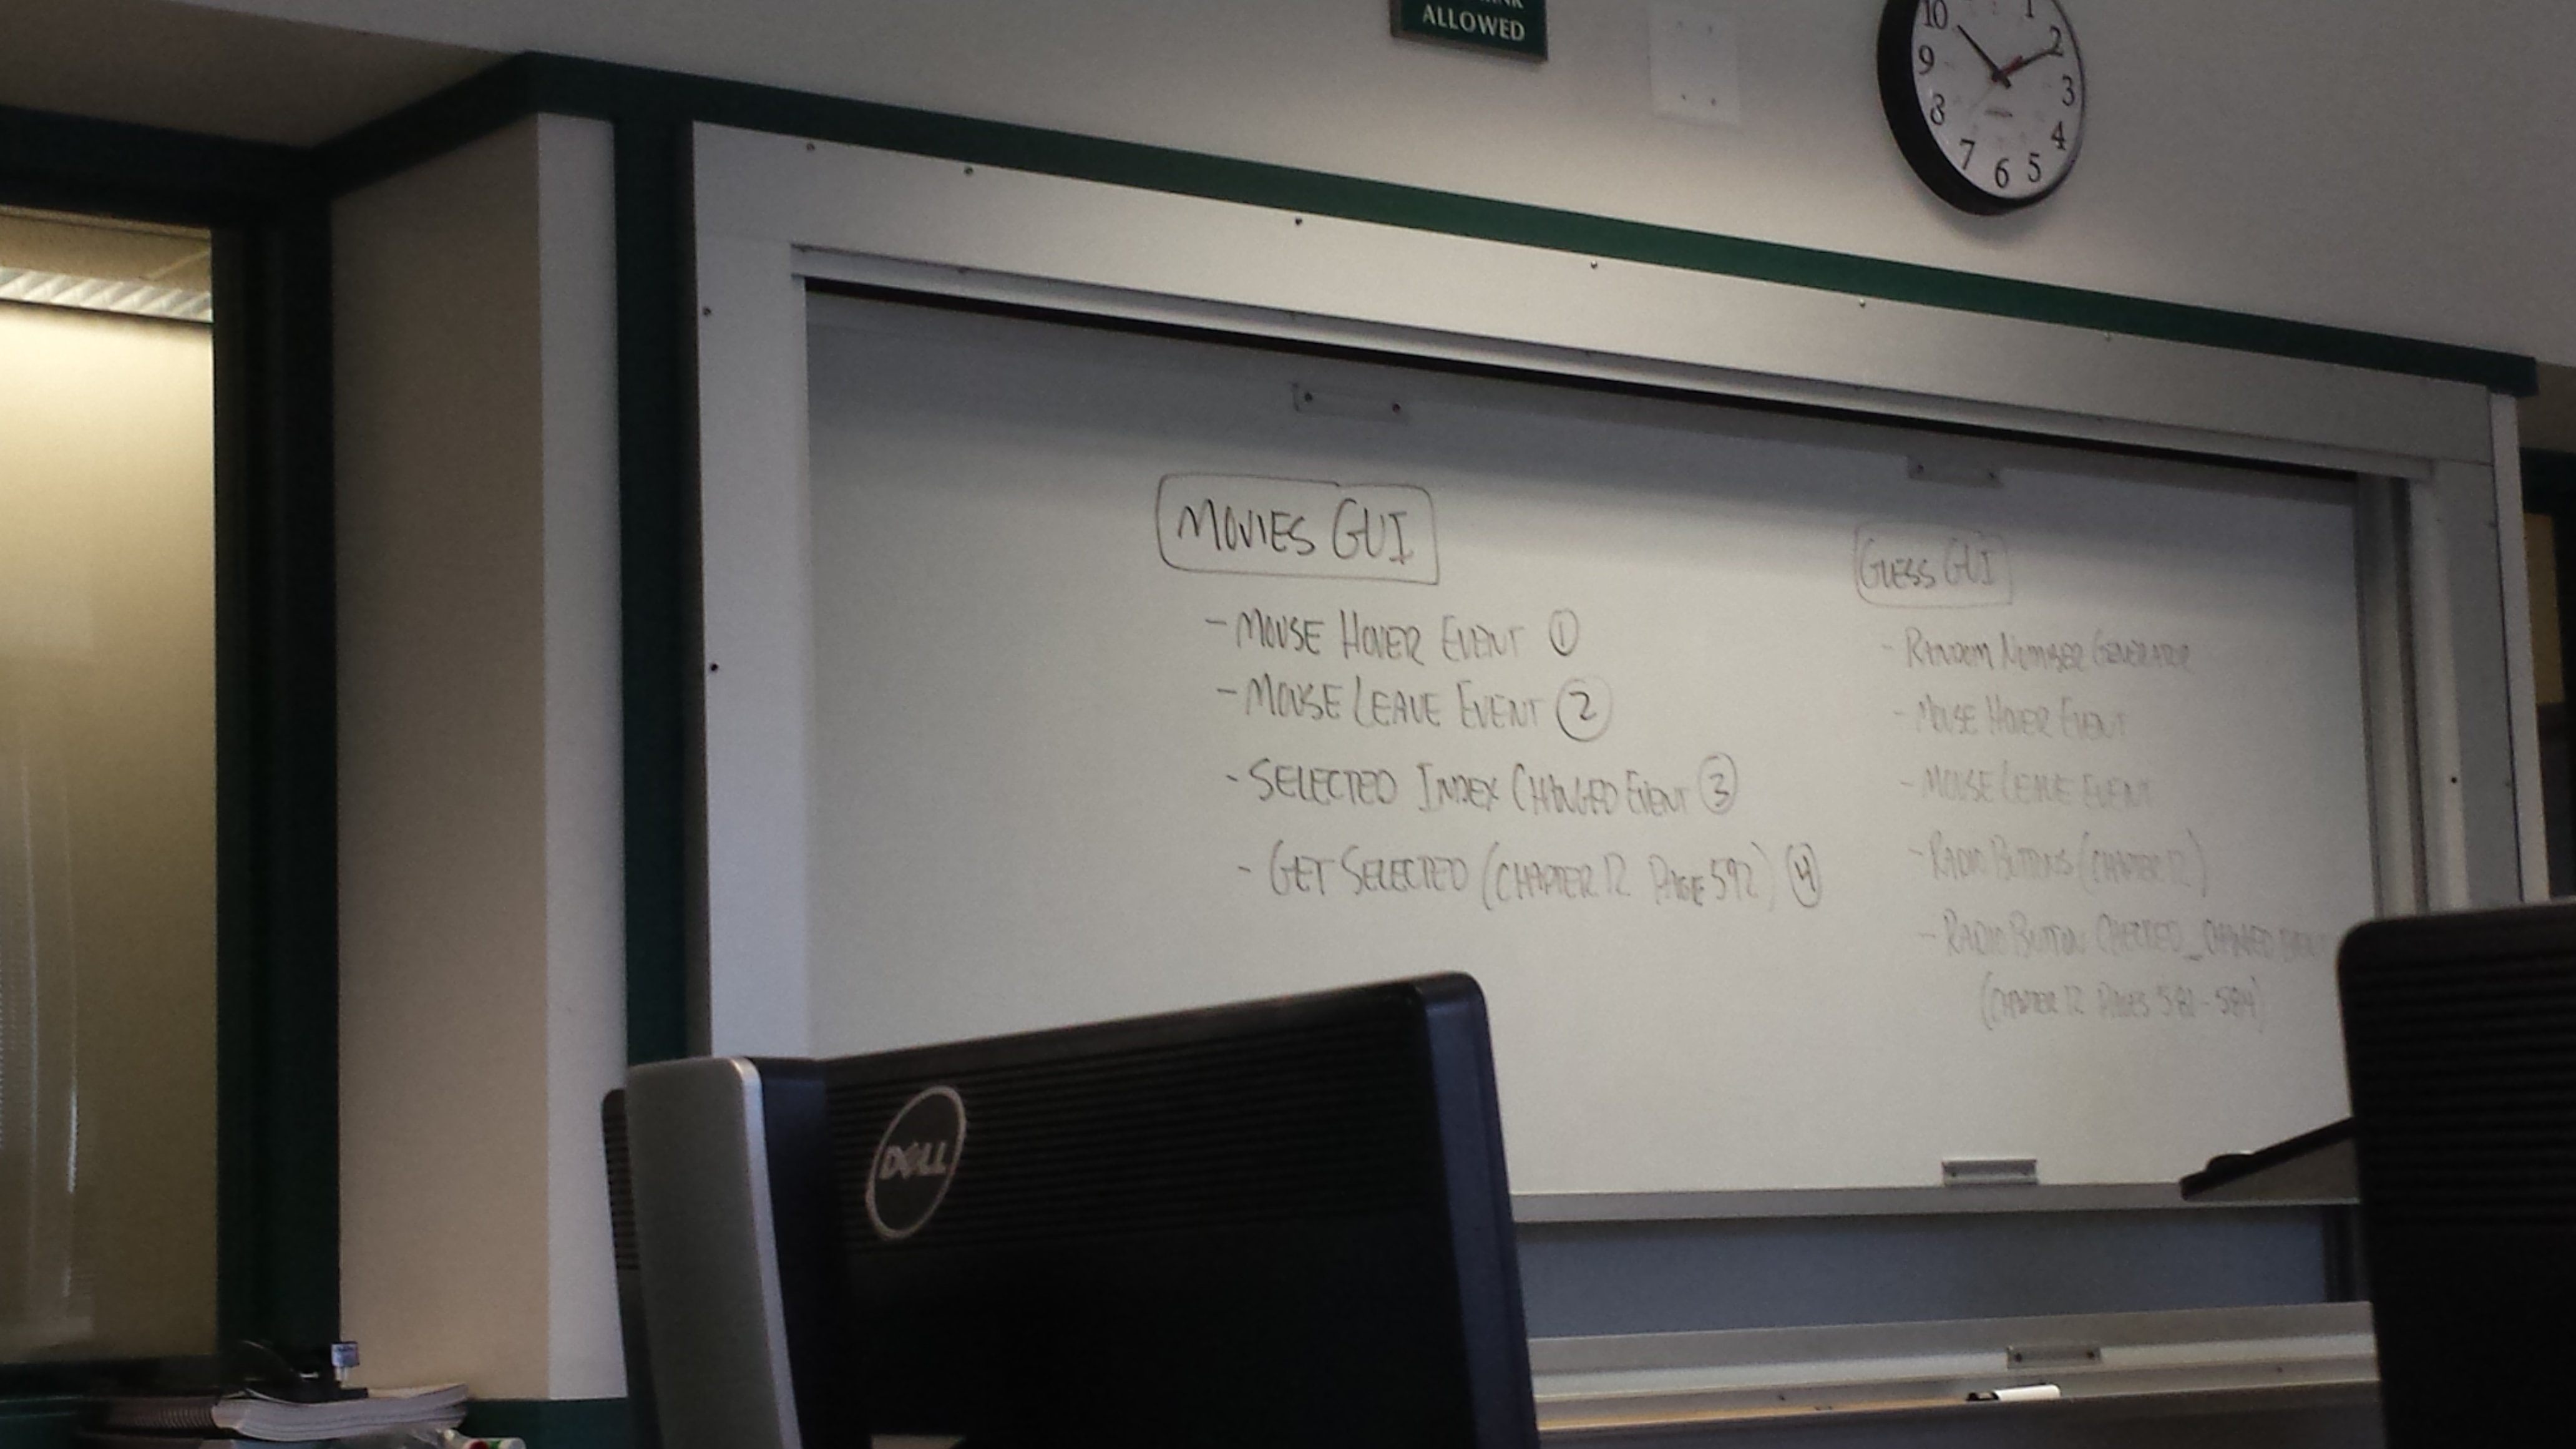 ALLOWED
10 1
9 2
8 3
7 6 5 4
MOVIES GUI
- MOUSE HOVER EVENT ①
- MOUSE LEAVE EVENT ②
- SELECTED INDEX CHANGED EVENT ③
- GET SELECTED (CHAPTER 12 PAGE 592) ④
GUESS GUI
- RANDOM NUMBER GENERATOR
- MOUSE HOVER EVENT
- MOUSE LEAVE EVENT
- RADIO BUTTONS (CHAPTER 12)
- RADIO BUTTON CHECKED_CHANGED EVENT
(CHAPTER 12 PAGES 581-584)
DELL